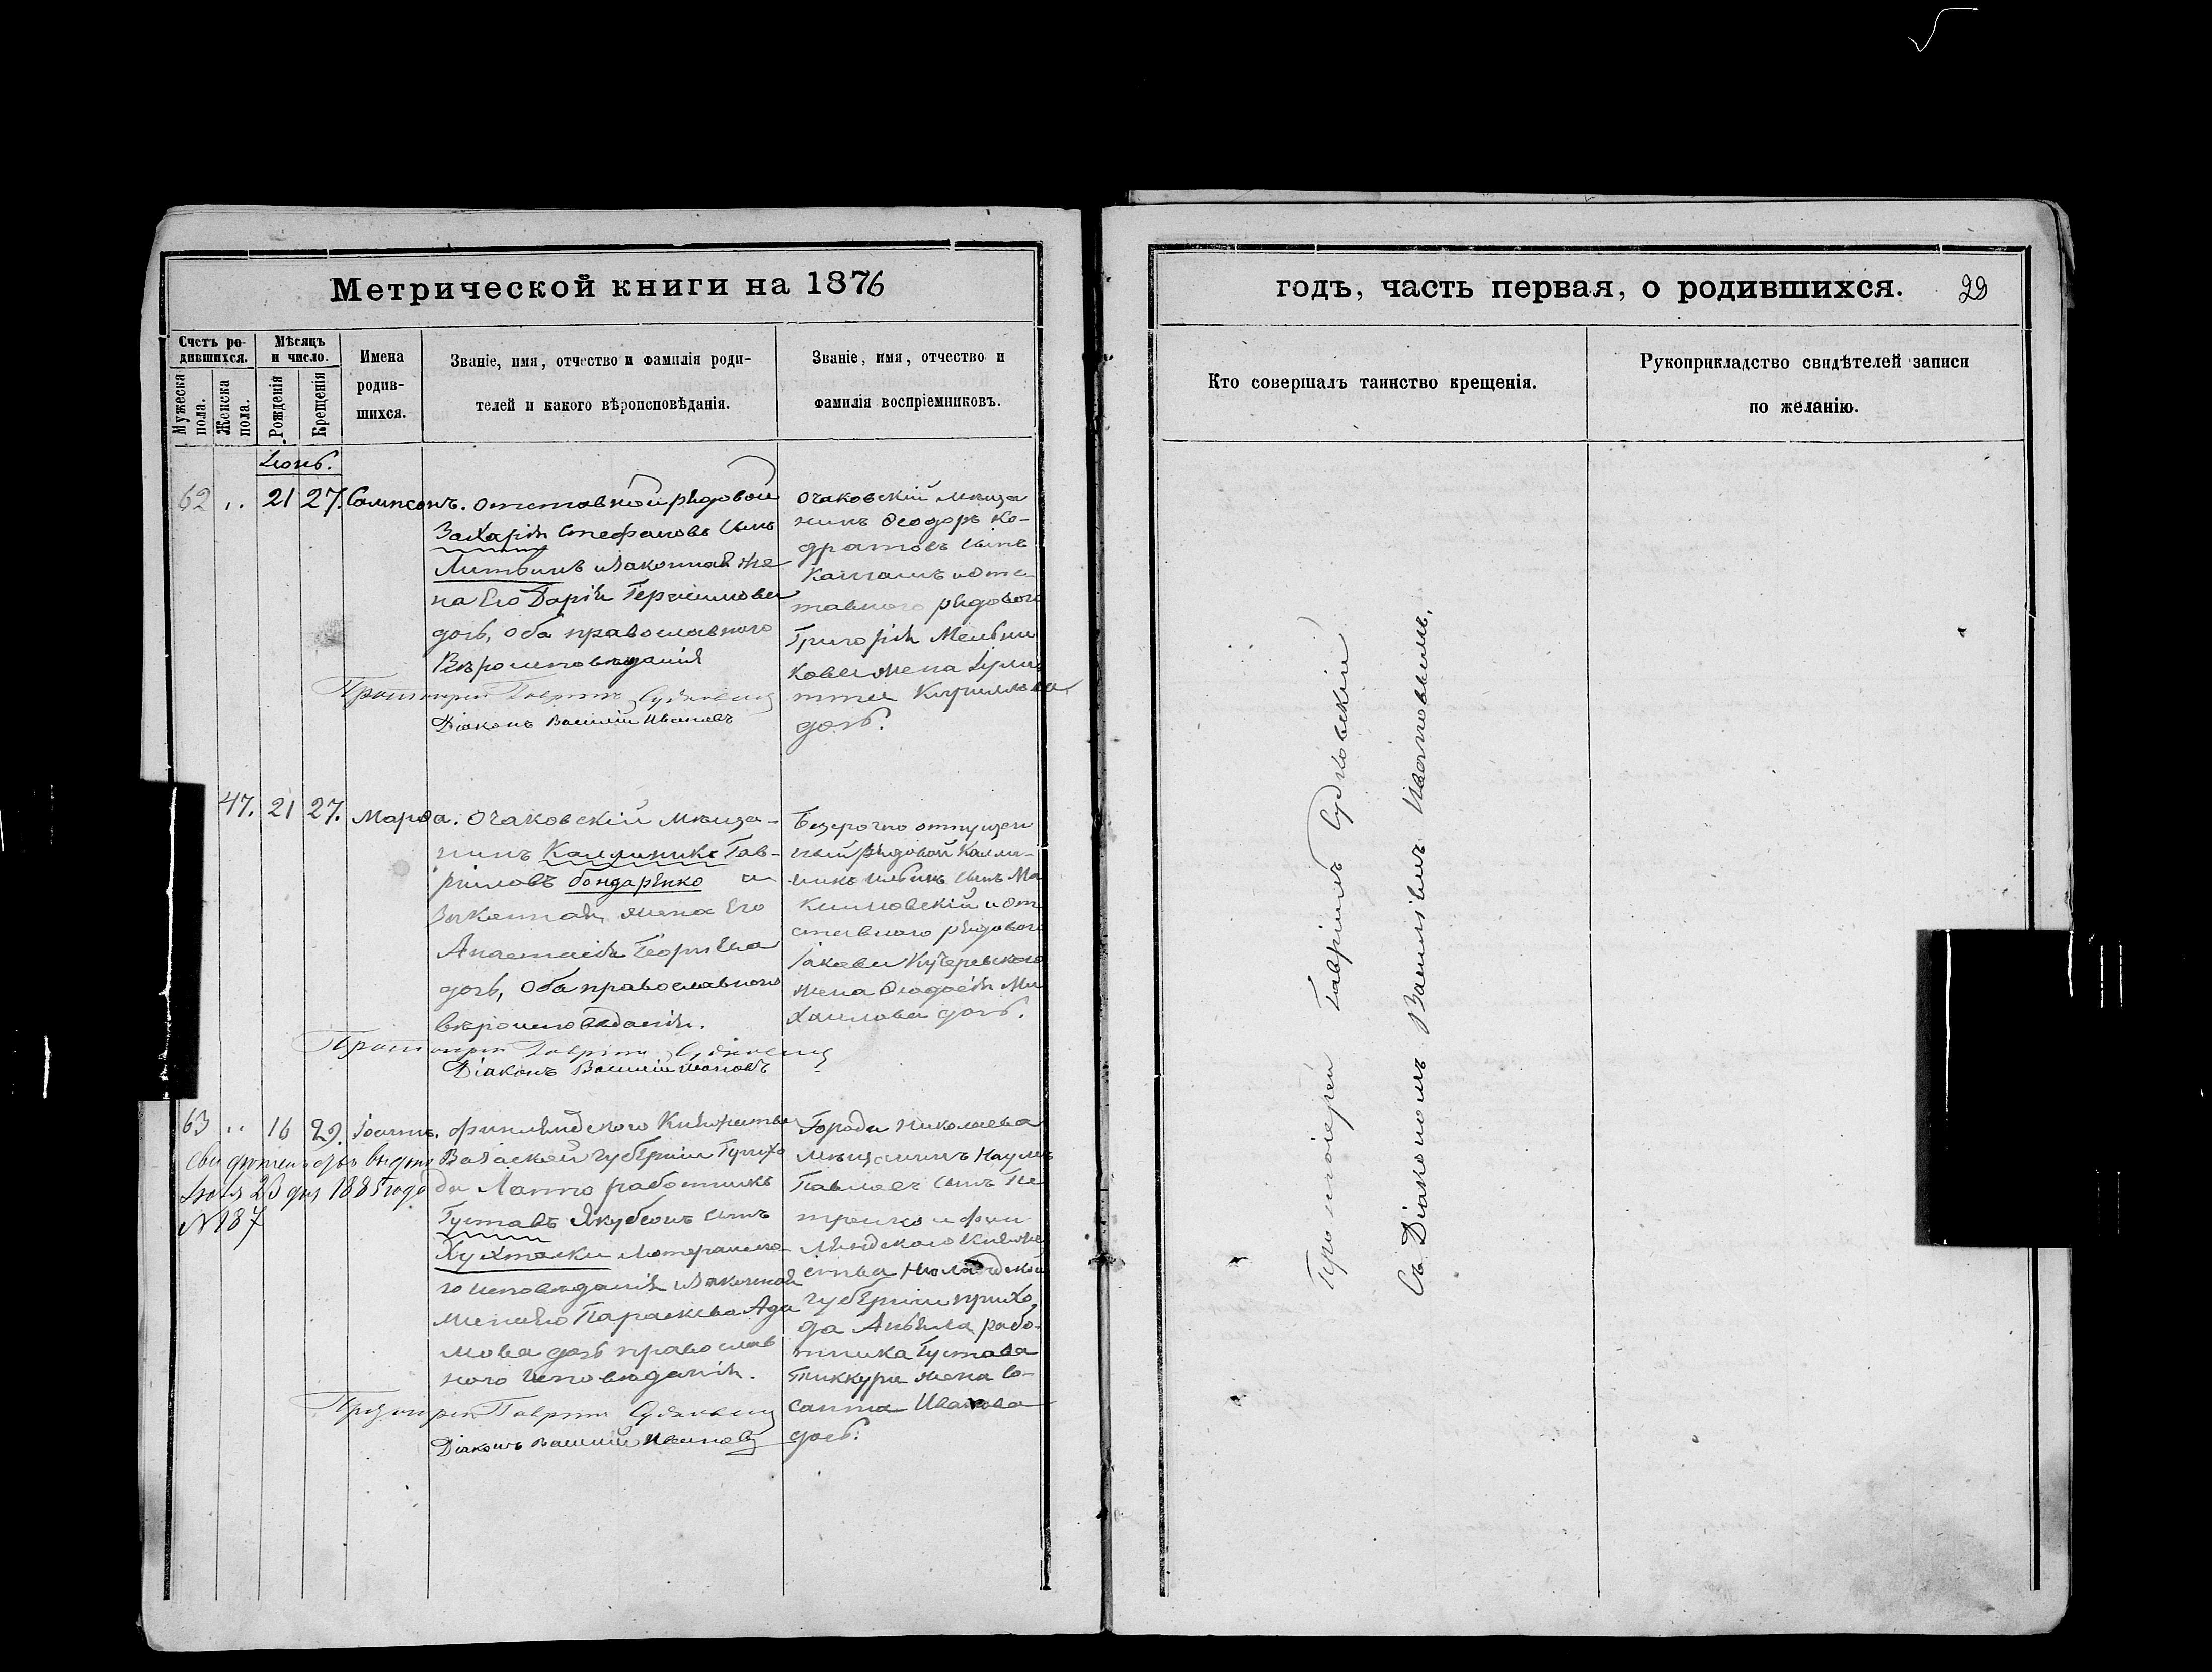 Метрической книги на 1876
Счетъ ро-
дившихся.
Мужеска
пола.
Женска
пола.
Мѣсяцъ
и число.
Рожденія
Крещенія
Имена
родив-
шихся.
Званіе, имя, отчество и фамилія роди-
телей и какого вѣроисповѣданія.
Званіе, имя, отчество и
фамилія воспріемниковъ.
Іюнь.
62 „ 21 27. Сампсонъ.
отставной рядовой
Захарія Стефановъ сынъ
Литвинъ и законная же
на Его Дарія Герасимова
дочь, оба православного
Вѣроисповѣданія
Протоіерей Гавріилъ Судковскій
Діаконъ Василій Ивановъ
Очаковскій мѣща
нинъ Ѳеодоръ Ко-
дратовъ сынъ
и отс-
тавного рядового
Григорія Мельни
кова жена
Кириллова
дочь.
47. 21 27. Марѳа.
Очаковскій мѣща-
нинъ Каллиникъ Гав-
ріиловъ бондаренко и
Законная жена Его
Анастасія Георгіева
дочь, Оба православного
вѣроисповѣданія.
Протоіерей Гавріилъ Судковскій
Діаконъ Василій Ивановъ
Безсрочно отпущен
ный рядовой Калли-
никъ сынъ Ма
и от
ставного рядового
Іакова Кучеревского
жена Ѳеодосія Ми
хаилова дочь.
63 „ 16 29. Іоаннъ.
свидѣтельство выдано
Іюля 26 дня 1885 года
№ 187
Финляндского Княжества
Вазаской губерніи Прихо
да Лаппо работникъ
Густавъ Якубсонъ сынъ
Хухталки лютеранска-
го исповѣданія и законная
жена Его Параскева Ада
мова дочь православ
ного исповѣданія.
Протоіерей Гавріилъ Судковскій
Діаконъ Василій Ивановъ
Города Николаева
мѣщанинъ Наумъ
Павловъ сынъ Пе
тренко и фин
ляндского Княже
ства Нюландской
губерніи прихо
да рабо-
тника Густава
Тиккури жена Со-
санна Иванова
дочь.
годъ, часть первая, о родившихся.
29
Кто совершалъ таинство крещенія.
Рукоприкладство свидѣтелей записи
по желанію.
Протоіерей Гавріилъ Судковскій
Съ Діакономъ Василіемъ Ивановымъ.